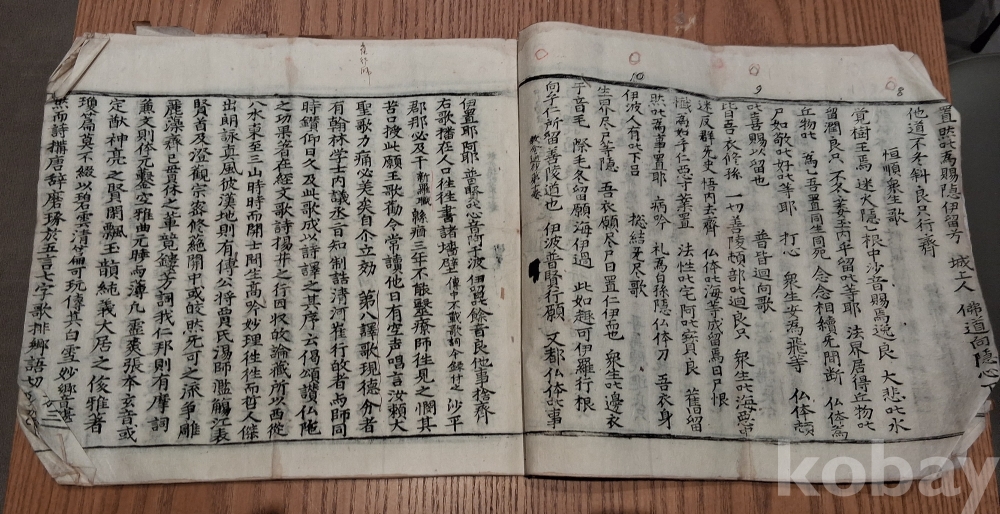 置然叱為賜隐伊留方 城上人 佛道向隐心下
他道不冬斜良只行齊
恒順衆生歌
覺樹王焉 迷火隐乙根中沙音賜焉逸良 大悲叱水
留潤良只 不冬萎玉內乎留叱等耶 法界居得丘物叱
丘物叱 為乙吾置同生同死 念念相續无間断 仏体為
尸如敬叱好叱等耶 打心 衆生安為飛等 仏体頓
叱喜賜以留也 普皆迴向歌
皆吾衣修孫 一切善陵頓部叱迴良只 衆生叱海惡中
迷反群无史悟內去齊 仏体叱海等成留焉日尸恨
懺為如乎仁惡寸業置 法性叱宅阿叱寶良 舊留
然叱為事置耶 病吟 礼為白孫隐仏体刀 吾衣身
伊波人有叱下呂 総結无尽歌
生界尽尸等隐 吾衣願尽尸日置仁伊而也 衆生叱邊衣
于音毛 際毛冬留願海伊過 此如趣可伊羅行根
向乎仁所留善陵道也 伊波普賢行願 又都仏体叱事
伊置耶阿耶 普賢叱心音阿于波伊留叱餘音良他事捨齊
右歌播在人口往往書諸墻壁 傳中不載歌詞今錄付之 沙平
郡那必及干 新羅職 緜痼三年不能毉療師往見之憫其
苦口授此願王歌勸令常讀他日有空声唱言汝頼大
聖歌力痛必差矣自尒立効 第八譯歌現德分者
有翰林学士內議丞旨知制誥清河崔行歸者与師同
時鑽仰日久及此歌成以詩譯之其序云偈頌讃仏陁
之功果著在経文歌詩揚菩薩之行因収歸論藏所以西從
八水東至三山時時而開士間生高吟妙理往往而哲人傑
出朗詠真風彼漢地則有傅公將賈氏湯師濫觴江表
賢首及澄觀宗密修絶関中或皎然無可之派争雕
麗藻齊己貫休之軰競鏤芳詞我仁邦則有摩詞
兼文則体元鑿空雅曲元曉与薄凡靈爽張本玄音或
定猷神亮之賢閑飄玉韻純義大居之俊雅著
瓊篇莫不綴以碧雲清篇可玩傳其白雪妙響
然而詩搆唐辞磨琢於五言七字歌排鄕語切